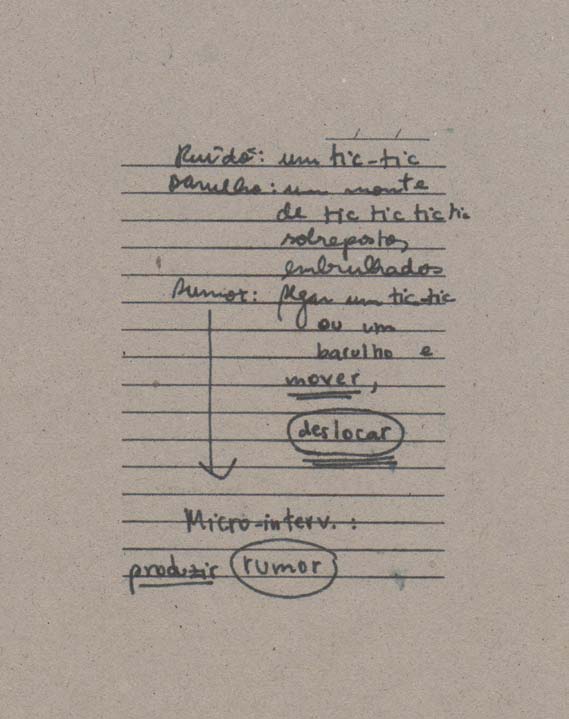 Ruído: um tic-tic
Barulho: um monte
de tic tic tic tic
sobrepostos,
embrulhados
Rumor: pegar um tic-tic
ou um
barulho e
mover,
deslocar
Micro-interv.:
produzir rumor